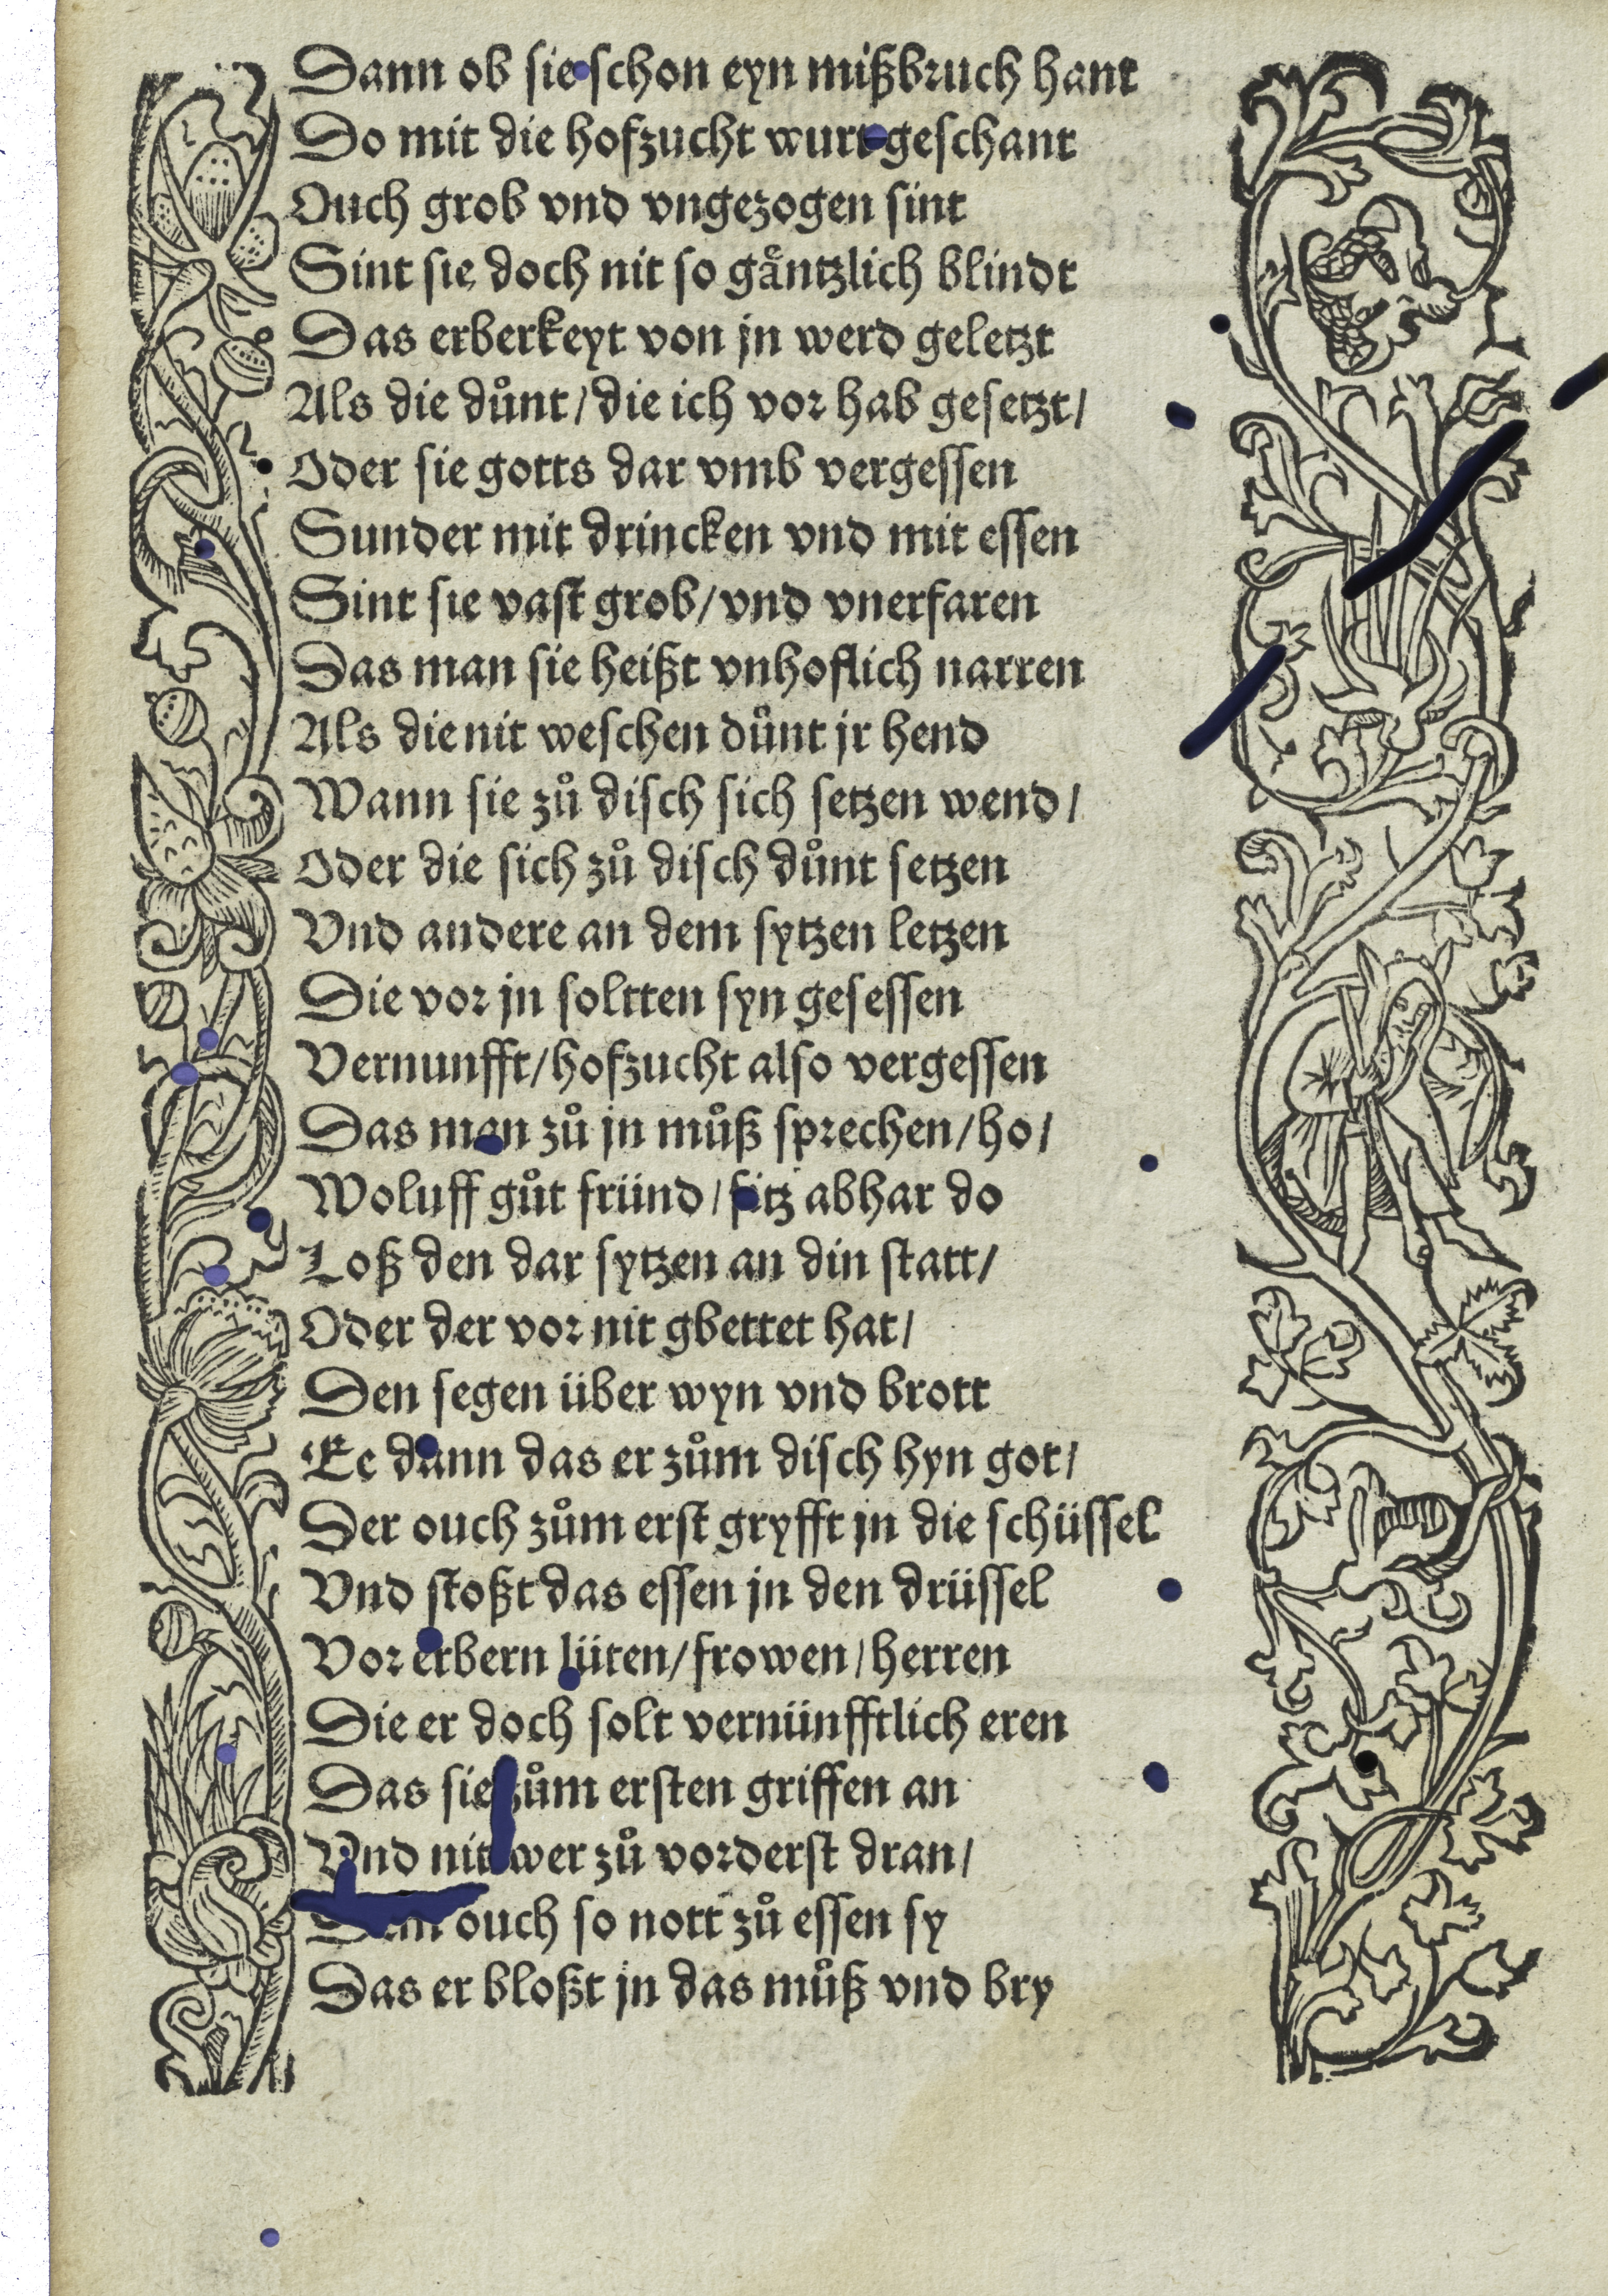 Dann ob sie schon eyn mißbruch hant
Do mit die hofzucht wurt geschant
Ouch grob vnd vngezogen sint
Sint sie doch nit so gåntzlich blindt
Das erberkeyt von jn werd geletzt
Als die důnt / die ich vor hab gesetzt /
Oder sie gotts dar vmb vergessen
Sunder mit drincken vnd mit essen
Sint sie vast grob / vnd vnerfaren
Das man sie heißt vnhoflich narren
Als die nit weschen důnt jr hend
Wann sie zů disch sich setzen wend /
Oder die sich zů disch důnt setzen
Vnd andere an dem sytzen letzen
Die vor jn soltten syn gesessen
Vernunfft / hofzucht also vergessen
Das man zů jn můß sprechen / ho /
Woluff gůt fründ / sitz abhar do
Loß den dar sytzen an din statt /
Oder der vor nit gbettet hat /
Den segen über wyn vnd brott
Ee dann das er zům disch hyn got /
Der ouch zům erst gryfft jn die schüssel
Vnd stoßt das essen jn den drüssel
Vor erbern lüten / frowen / herren
Die er doch solt vernünfftlich eren
Das sie zům ersten griffen an
Vnd nit wer zů vorderst dran /
ouch so nott zů essen sy
Das er bloßt jn das můß vnd bry